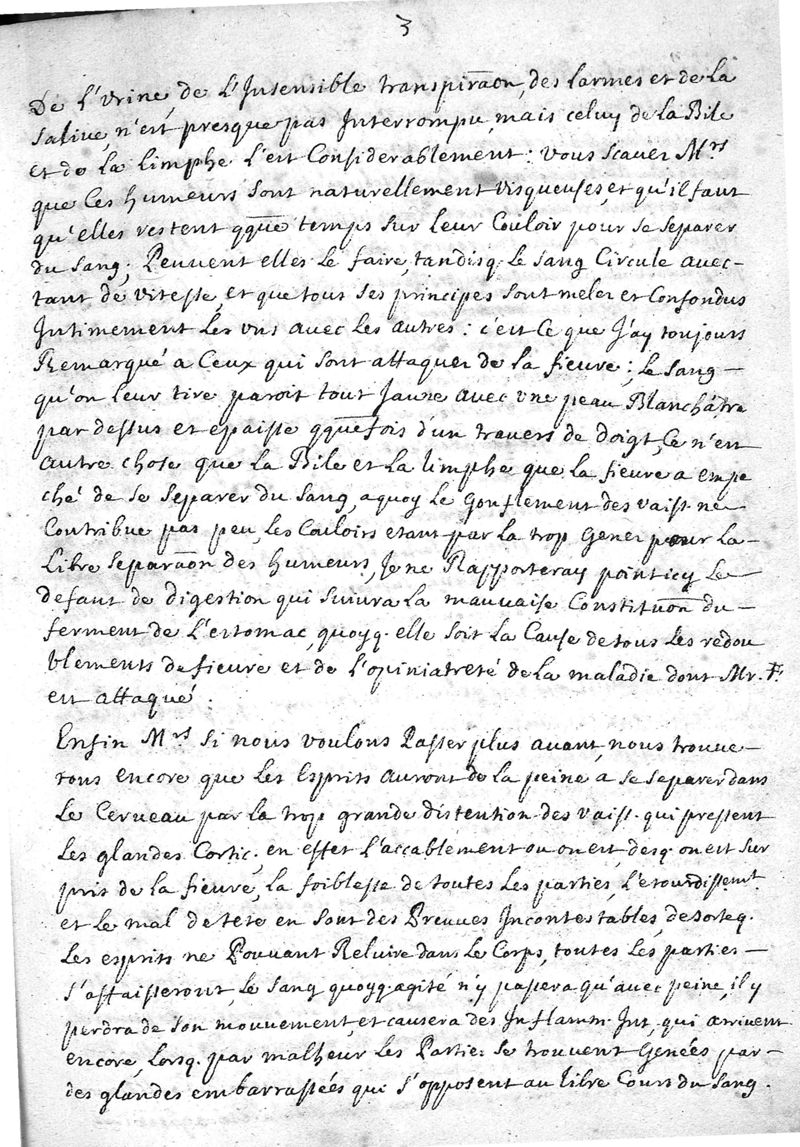 3
De l'vrine, de l'Insensible transpirãon, des larmes et de la
salive, n'est presque pas Interrompu, mais celuy de la Bile
et de la limphe l'est Considerablement : vous scauez Mrs
que Ces humeurs sont naturellement visqueuses, et qu'il faut
qu'elles restent qq̃ue temps sur leur Couloir pour se separer
du sang ; Peuuent elles le faire, tandisq. le sang Circule auec-
tant de vitesse, et que tous ses principes sont melez et Confondus
Intimement les vns avec les autres : c'est Ce que J'ay toujours
Remarqué a Ceux qui sont attaquez de la fieure ; le sang-
qu'on leur tire paroit tout Jaune avec vne peau Blanchâtre
par dessus et epaisse qq̃uefois d'un travers de doigt, Ce n'est
autre chose que la Bile et la limphe que la fieure a empe
ché de se separer du sang, aquoy le gonflement des vaiss. ne
Contribue pas peu, les Couloirs etant par la trop genez pour la-
libre separãon des humeurs, Je ne Rapporteray point icy le
defaut de digestion qui suiura la mauvaise Constitũon du-
ferment de l'estomac, quoyq. elle soit la Cause de tous les redou
blements de fieure et de l'opiniatreté de la maladie dont Mr. F.
est attaqué.
Enfin Mrs si nous voulons Passer plus auant, nous trouue-
rons encore que les Esprits auront de la peine a se separer dans
le Cerueau par la trop grande distention des vaiss. qui pressent
les glandes Cortic., en effet l'accablement ou on est desq. on est sur
pris de la fieure, la foiblesse de toutes les parties, l'etourdissemt
et le mal de tete en sont des Preuues Incontestables, de sorte q.
les esprits ne Pouvant Reluire dans le Corps, toutes les parties-
s'affaisseront, le sang quoyq. agité n'y passera qu'avec peine, il y
perdra de son mouvement, et causera des Inflamm. Int, qui arrivent
encore, lorsq. par malheur les Parties se trouvent Genées par-
des glandes embarrassées qui s'opposent au libre Cours du sang.